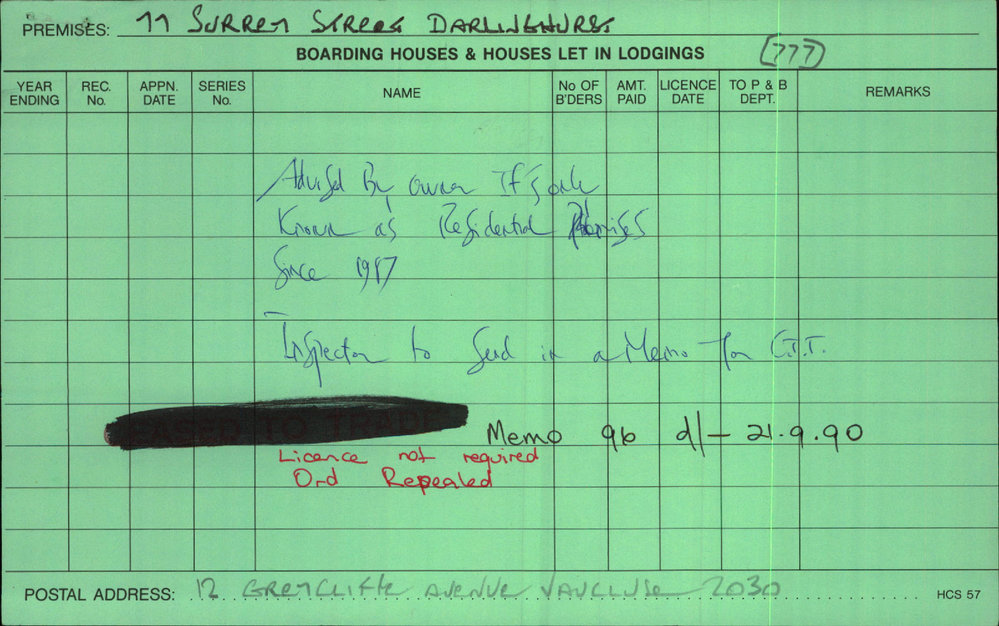 PREMISES: 77 SURREY STREET DARLINGHURST
BOARDING HOUSES & HOUSES LET IN LODGINGS (777)
YEAR ENDING REC. No. APPN. DATE SERIES No. NAME No OF B'DERS AMT. PAID LICENCE DATE TO P & B DEPT. REMARKS
Advised By owner It's only
Known as Residential Premises
Since 1987
Inspector to Send in a Memo for C.T.T.
CEASED TO TRADE Memo 96 d/– 21.9.90
Licence not required
Ord Repealed
POSTAL ADDRESS: 12 GREYCLIFFE AVENUE VAUCLUSE 2030
HCS 57